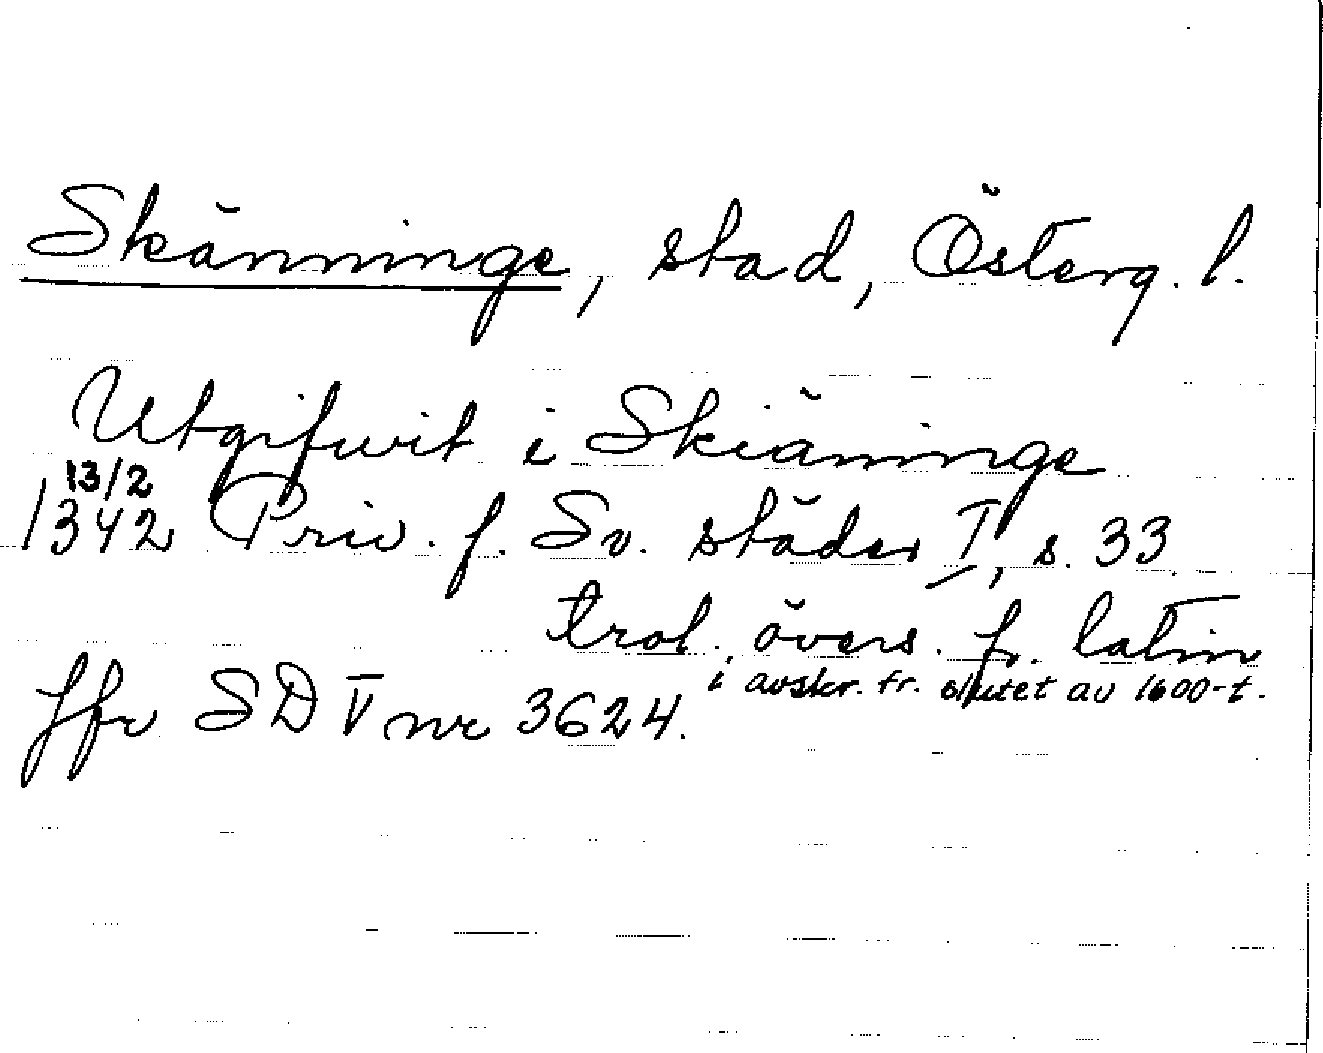 Skänninge, stad, Österg. l.
Utgifwit i Skiäninge
13/2
1342 Priv. f. Sv. städer I, s. 33.
trol. övers. fr. latin
i avskr. fr. slutet av 1600-t.
Jfr SD V nr 3624.